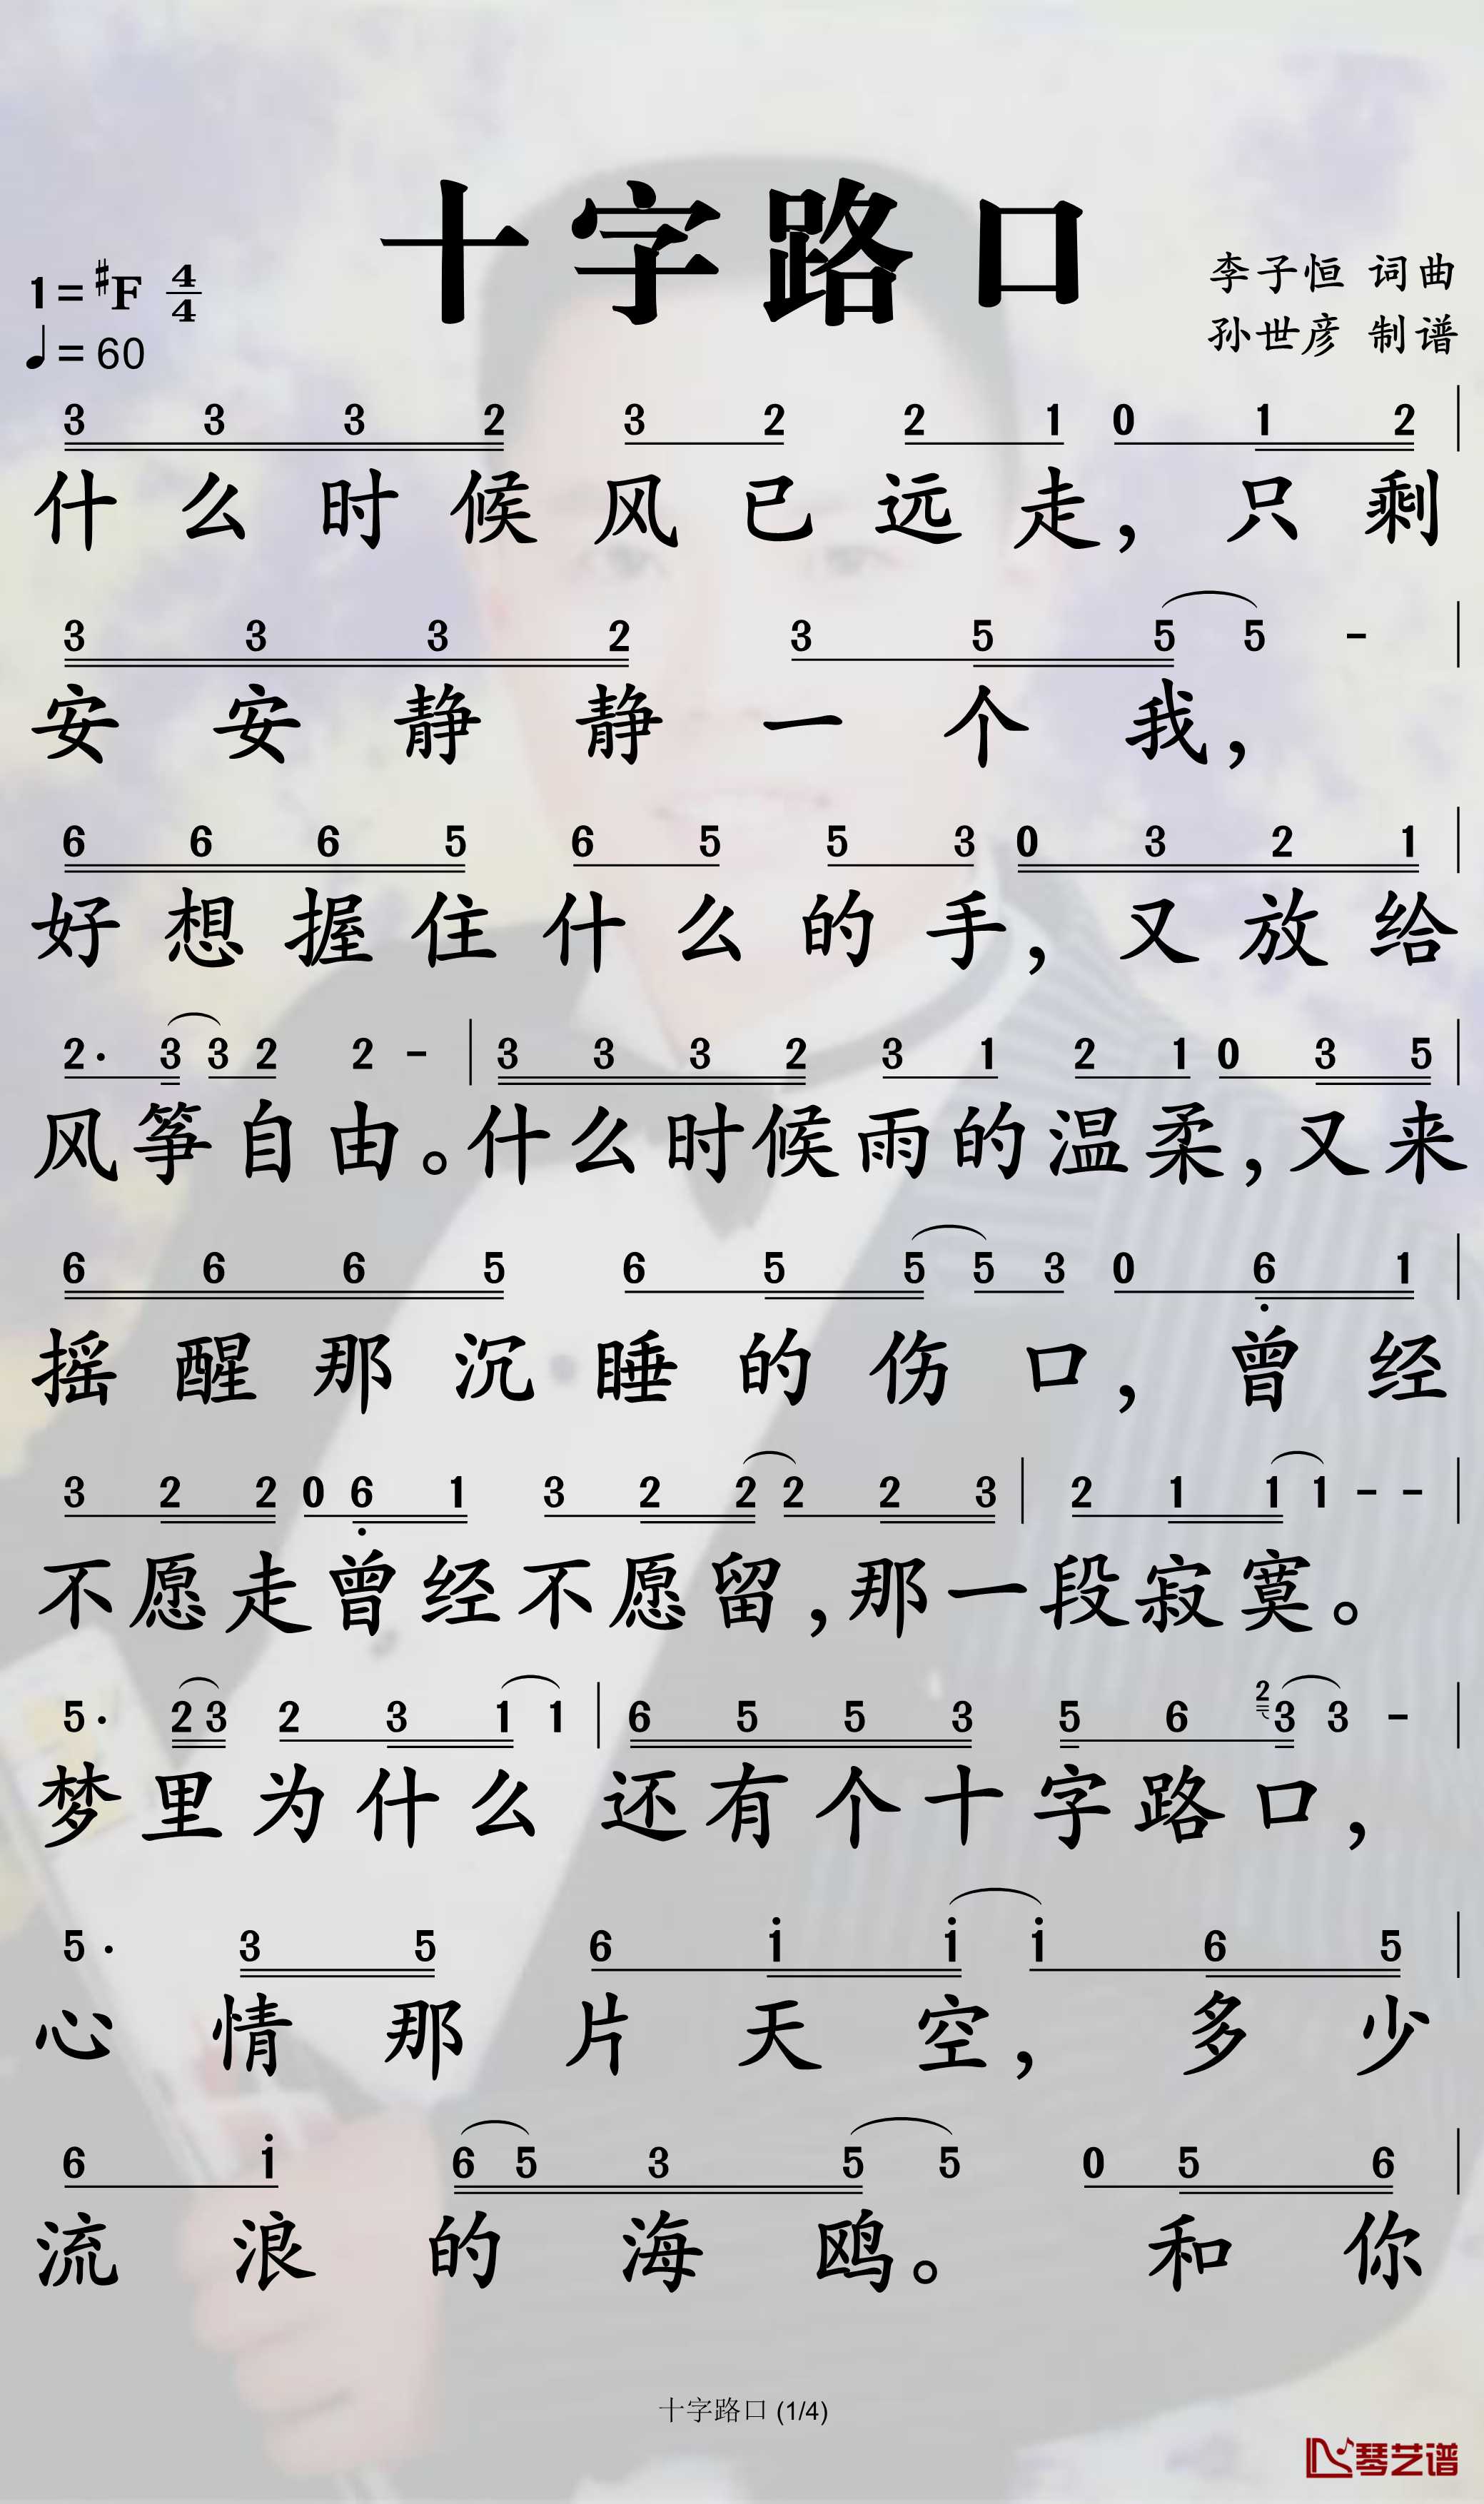 十字路口
1=#F 4/4
♩=60
李子恒 词曲
孙世彦 制谱
3 3 3 2 3 2 2 1 0 1 2 |
什么时候风已远走，只剩
3 3 3 2 3 5 5 5 - |
安安静静一个我，
6 6 6 5 6 5 5 3 0 3 2 1 |
好想握住什么的手，又放给
2· 3 3 2 2 - | 3 3 3 2 3 1 2 1 0 3 5 |
风筝自由。什么时候雨的温柔，又来
6 6 6 5 6 5 5 5 3 0 6̣ 1 |
摇醒那沉睡的伤口，曾经
3 2 2 0 6̣ 1 3 2 2 2 2 3 | 2 1 1 1 - - |
不愿走曾经不愿留，那一段寂寞。
5· 2 3 2 3 1 1 | 6 5 5 3 5 6 2 3 3 - |
梦里为什么还有个十字路口，
5· 3 5 6 1̇ 1̇ 1̇ 6 5 |
心情那片天空，多少
6 1̇ 6 5 3 5 5 0 5 6 |
流浪的海鸥。和你
十字路口 (1/4)
琴艺谱